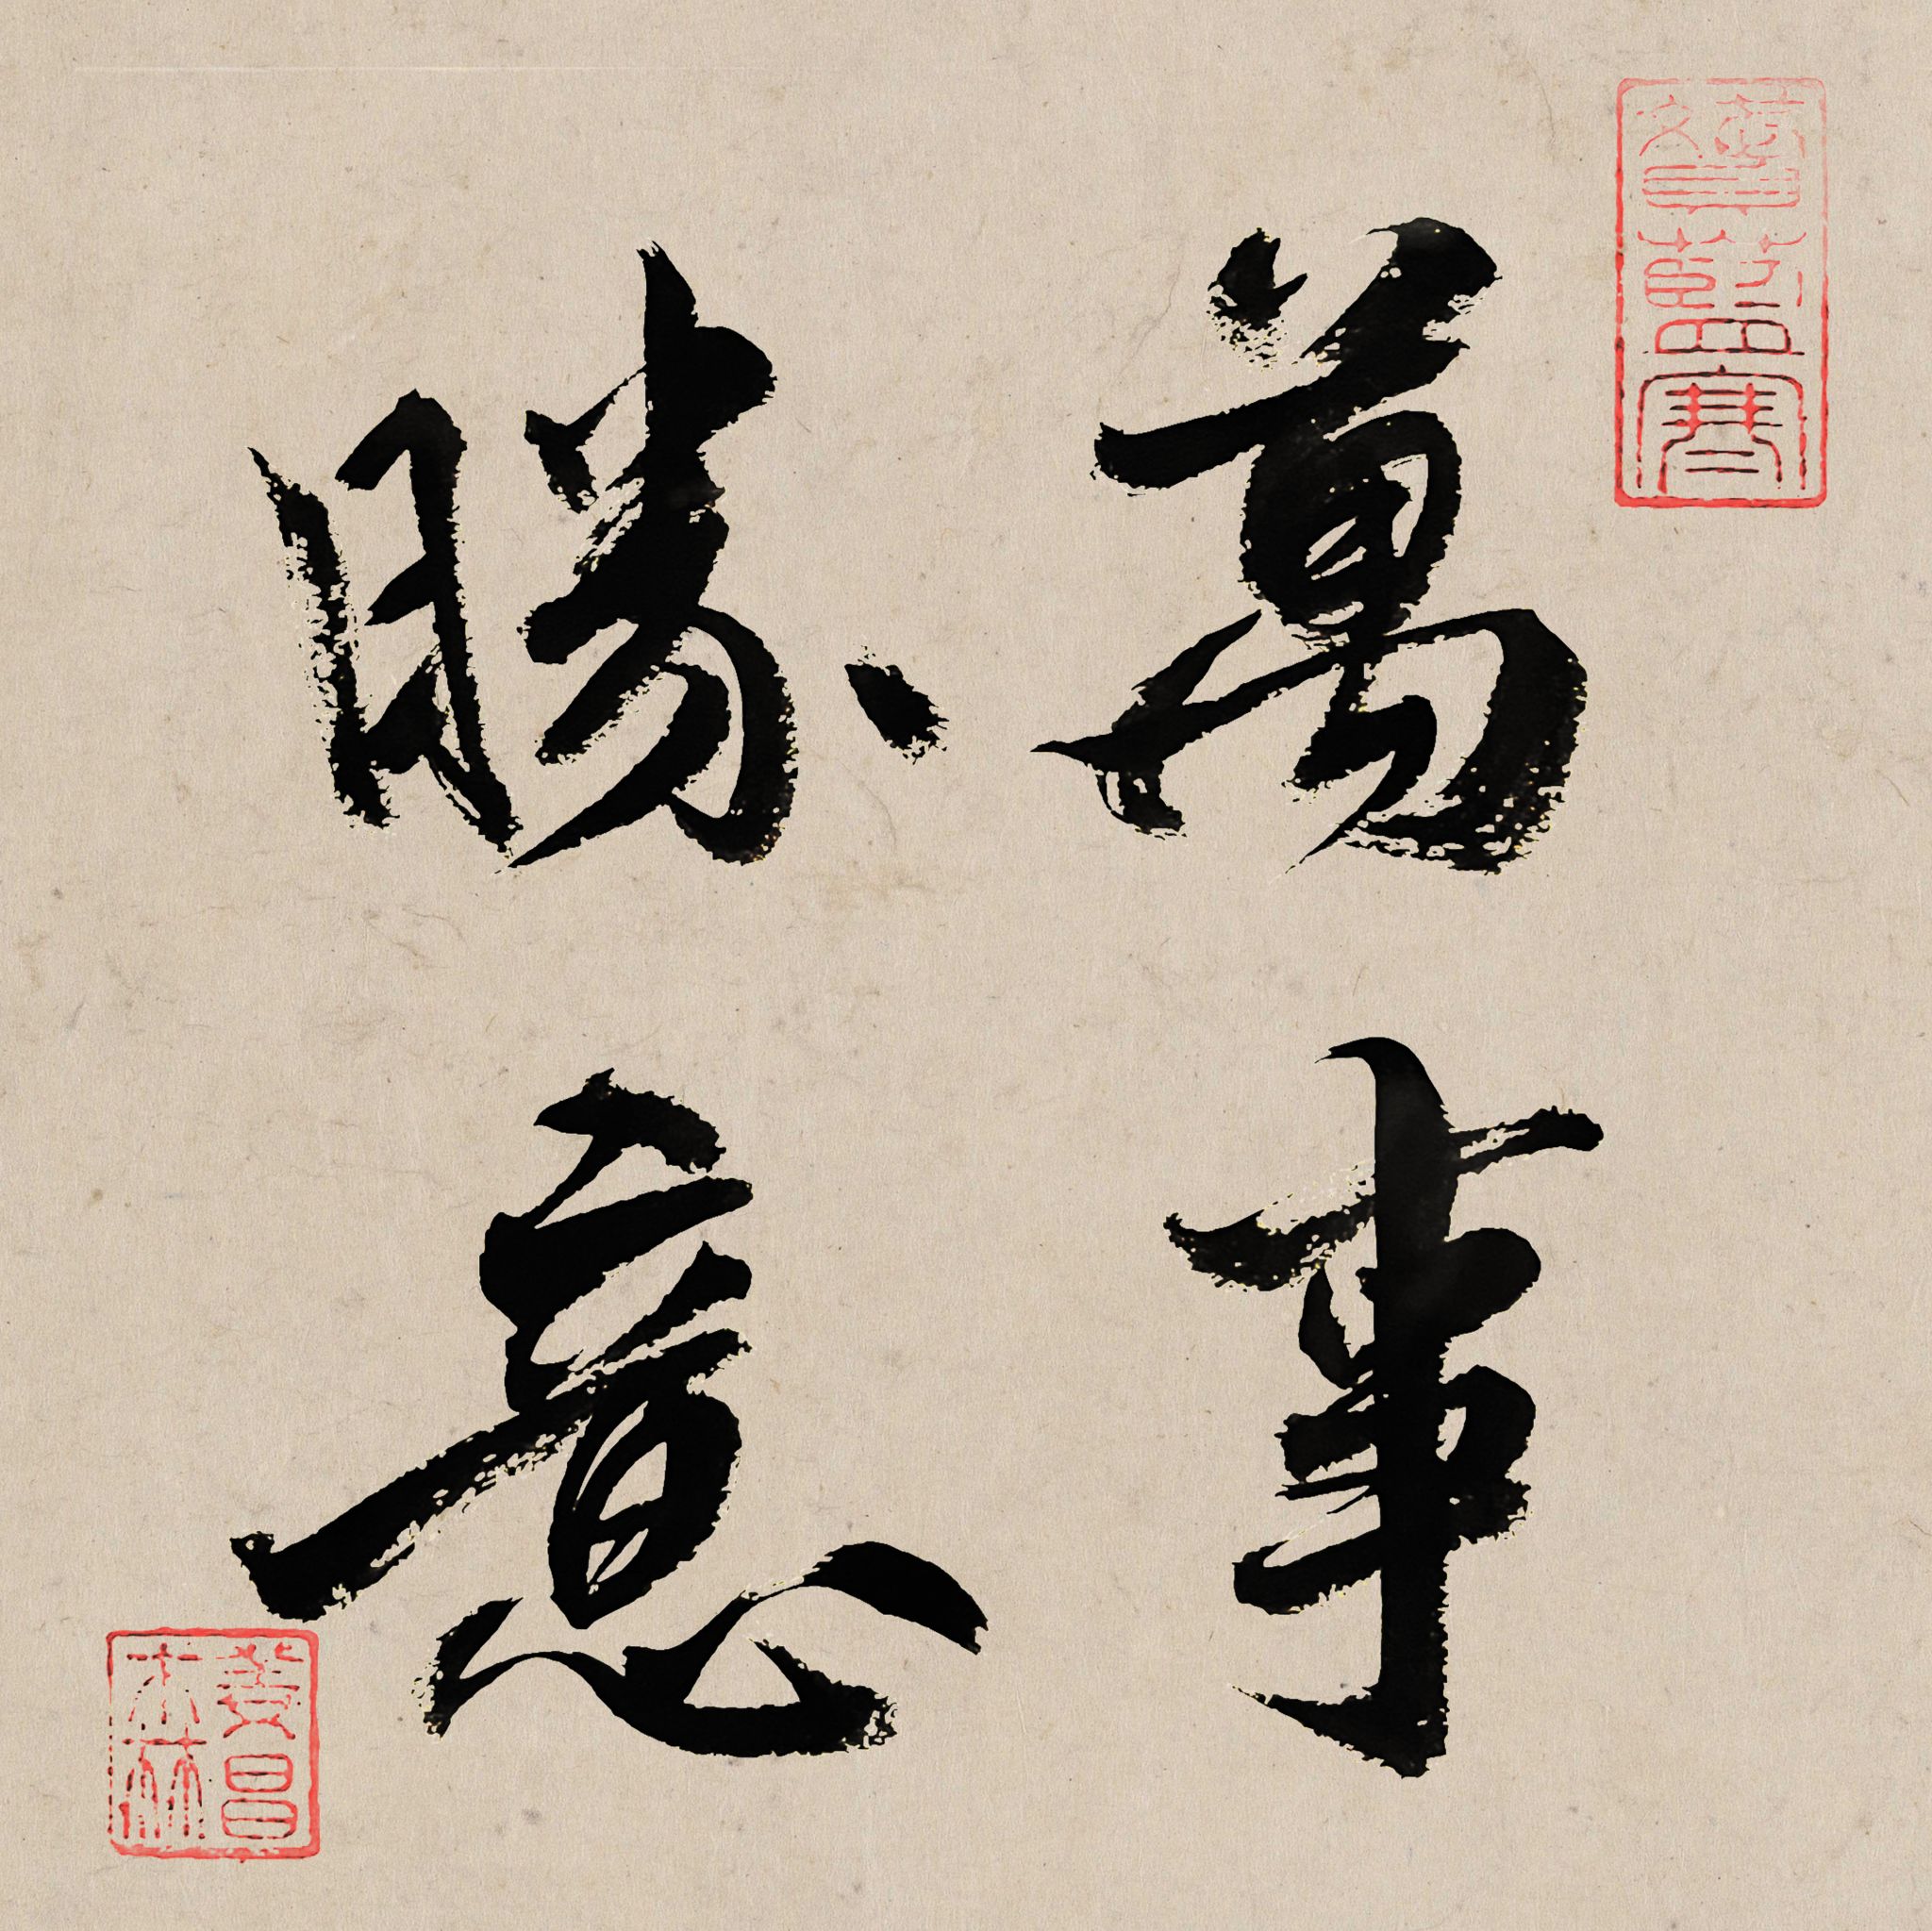 萬事
勝意